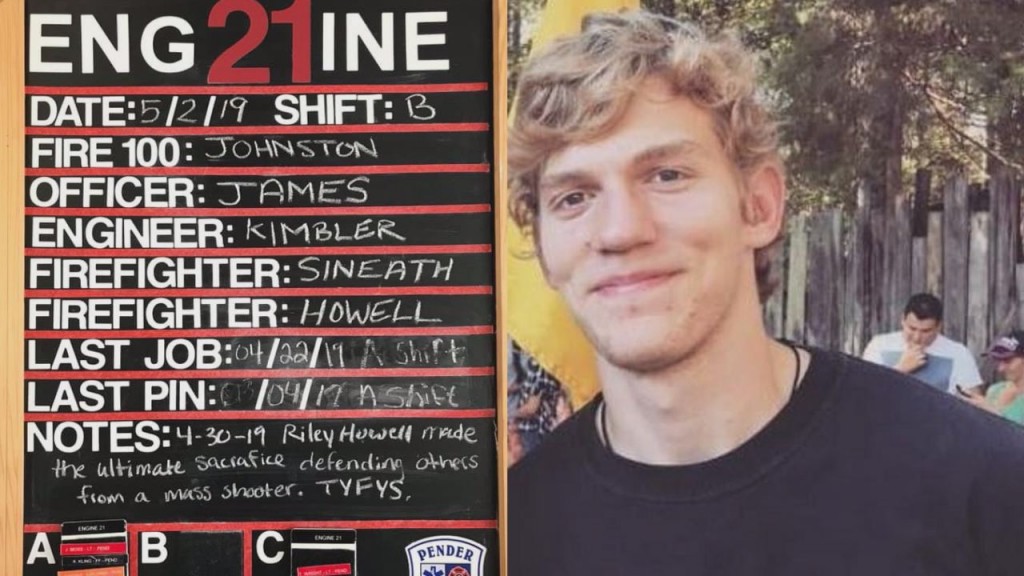 ENG21INE
DATE: 5/2/19 SHIFT: B
FIRE 100: JOHNSTON
OFFICER: JAMES
ENGINEER: KIMBLER
FIREFIGHTER: SINEATH
FIREFIGHTER: HOWELL
LAST JOB: 04/22/19 A Shift
LAST PIN: /04/19 A Shift
NOTES: 4-30-19 Riley Howell made
the ultimate sacrafice defending others
from a mass shooter. TYFYS.
A ENGINE 21 B C ENGINE 21
PENDER